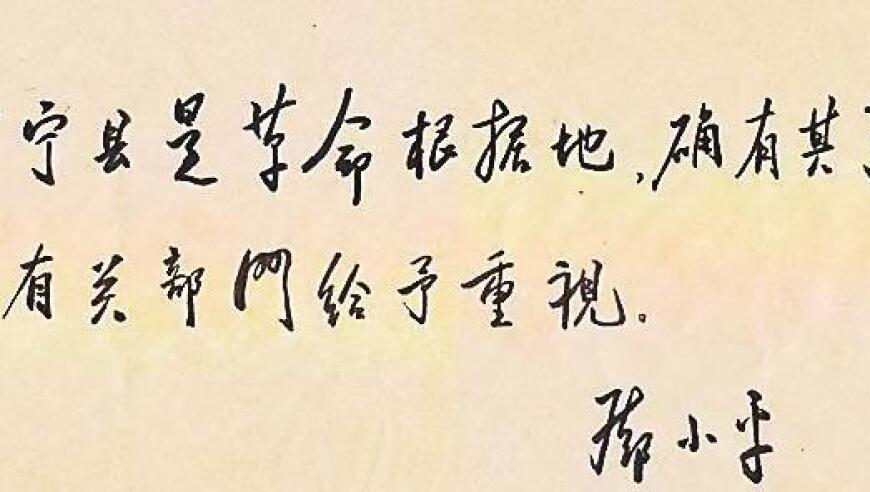 宁县是革命根据地，确有其
有关部門给予重視。
邓小平